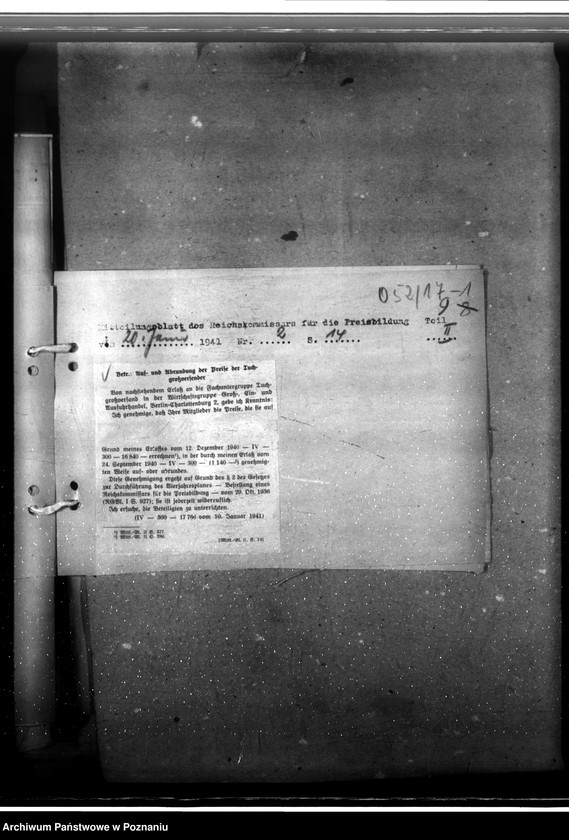 052/17-1
9 8
Mitteilungsblatt des Reichskommissars für die Preisbildung Teil II
vom 20. Janr 1941 Nr. 2 S. 14
Betr.: Auf- und Abrundung der Preise der Tuch-
großversender
Von nachstehendem Erlaß an die Fachuntergruppe Tuch-
großversand in der Wirtschaftsgruppe Groß-, Ein- und
Ausfuhrhandel, Berlin-Charlottenburg 2, gebe ich Kenntnis:
Ich genehmige, daß Ihre Mitglieder die Preise, die sie auf
Grund meines Erlasses vom 12. Dezember 1940 — IV —
300 — 16 840 — errechnen¹), in der durch meinen Erlaß vom
24. September 1940 — IV — 300 — (1 140 —²) genehmig-
ten Weise auf- oder abrunden.
Diese Genehmigung ergeht auf Grund des § 2 des Gesetzes
zur Durchführung des Vierjahresplanes — Bestellung eines
Reichskommissars für die Preisbildung — vom 29. Okt. 1936
(RGBl. I S. 927); sie ist jederzeit widerruflich.
Ich ersuche, die Beteiligten zu unterrichten.
(IV — 300 — 1776) vom 10. Januar 1941)
¹) Mitt.-Bl. II S.
²) Mitt.-Bl. II S.
(Mitt.-Bl. II, S. 14)
Archiwum Państwowe w Poznaniu